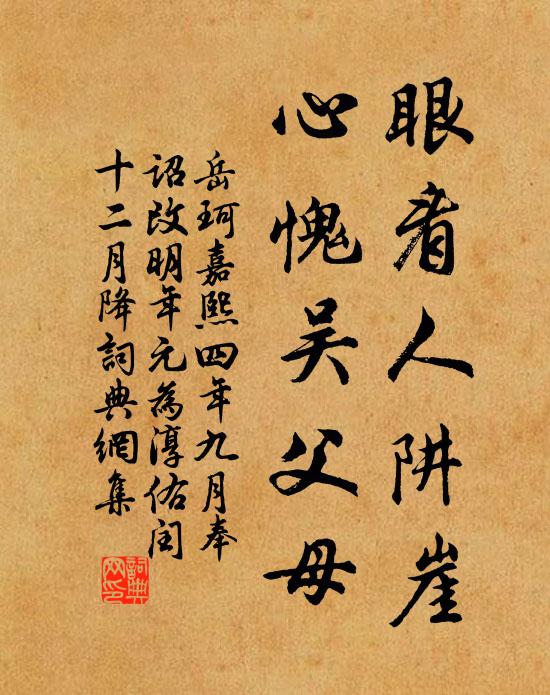 眼看人阱崖
心愧吴父母
岳珂嘉熙四年九月奉
诏改明年元為淳佑闰
十二月降詞典網集
詞典网印